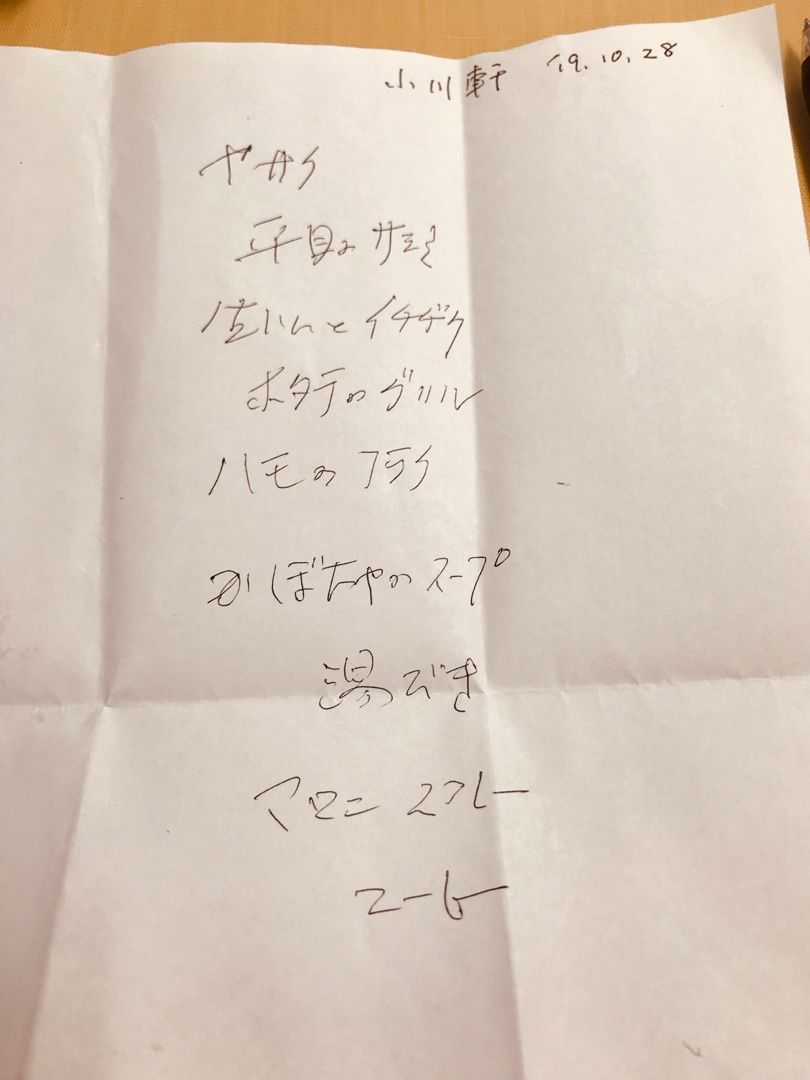 小川軒 '19.10.28
ヤサイ
平目の サラダ
生ハムと イチヂク
ホタテの グリル
ハモの フライ
かぼちゃの スープ
湯びき
マロン スフレー
コーヒー